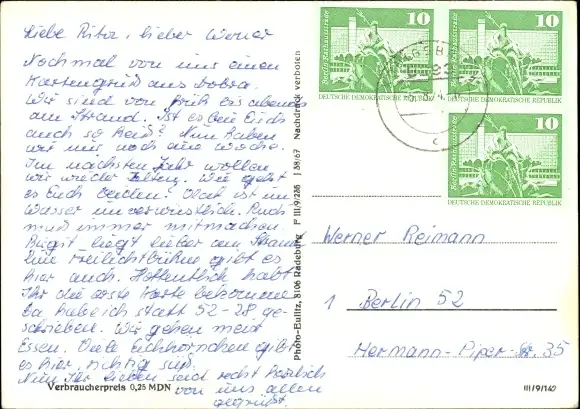 Liebe Rita, lieber Werner
Nochmal von uns einen
Kartengruß aus Dobra.
Wir sind von früh bis abends
am Strand. Ist es bei Euch
auch so heiß? Nun haben
wir nur noch eine Woche.
Im nächsten Jahr wollen
wir wieder zelten. Wie geht
es Euch beiden? Olaf ist im
Wasser unverwüstlich. Rudi
muß immer mitmachen.
Birgit liegt lieber am Strand
Eine Freilichtbühne gibt es
hier auch. Hoffentlich habt
Ihr die erste Karte bekommen
Da habe ich statt 52-28 ge-
schrieben. Wir gehen mein
Essen. Viele Eichhörnchen gibt
es hier, richtig süß.
Nun Ihr Lieben seid recht herzlich
von uns allen
gegrüßt.
Verbraucherpreis 0,25 MDN
Photo-Bulitz, 8106 Radeburg P III/9/285 J 38/67 Nachdruck verboten
10
Berlin-Rathausstraße
DEUTSCHE DEMOKRATISCHE REPUBLIK
10
DEUTSCHE DEMOKRATISCHE REPUBLIK
10
Berlin-Rathausstraße
DEUTSCHE DEMOKRATISCHE REPUBLIK
Werner Reimann
1 Berlin 52
Hermann-Piper-Str. 35
III/9/142